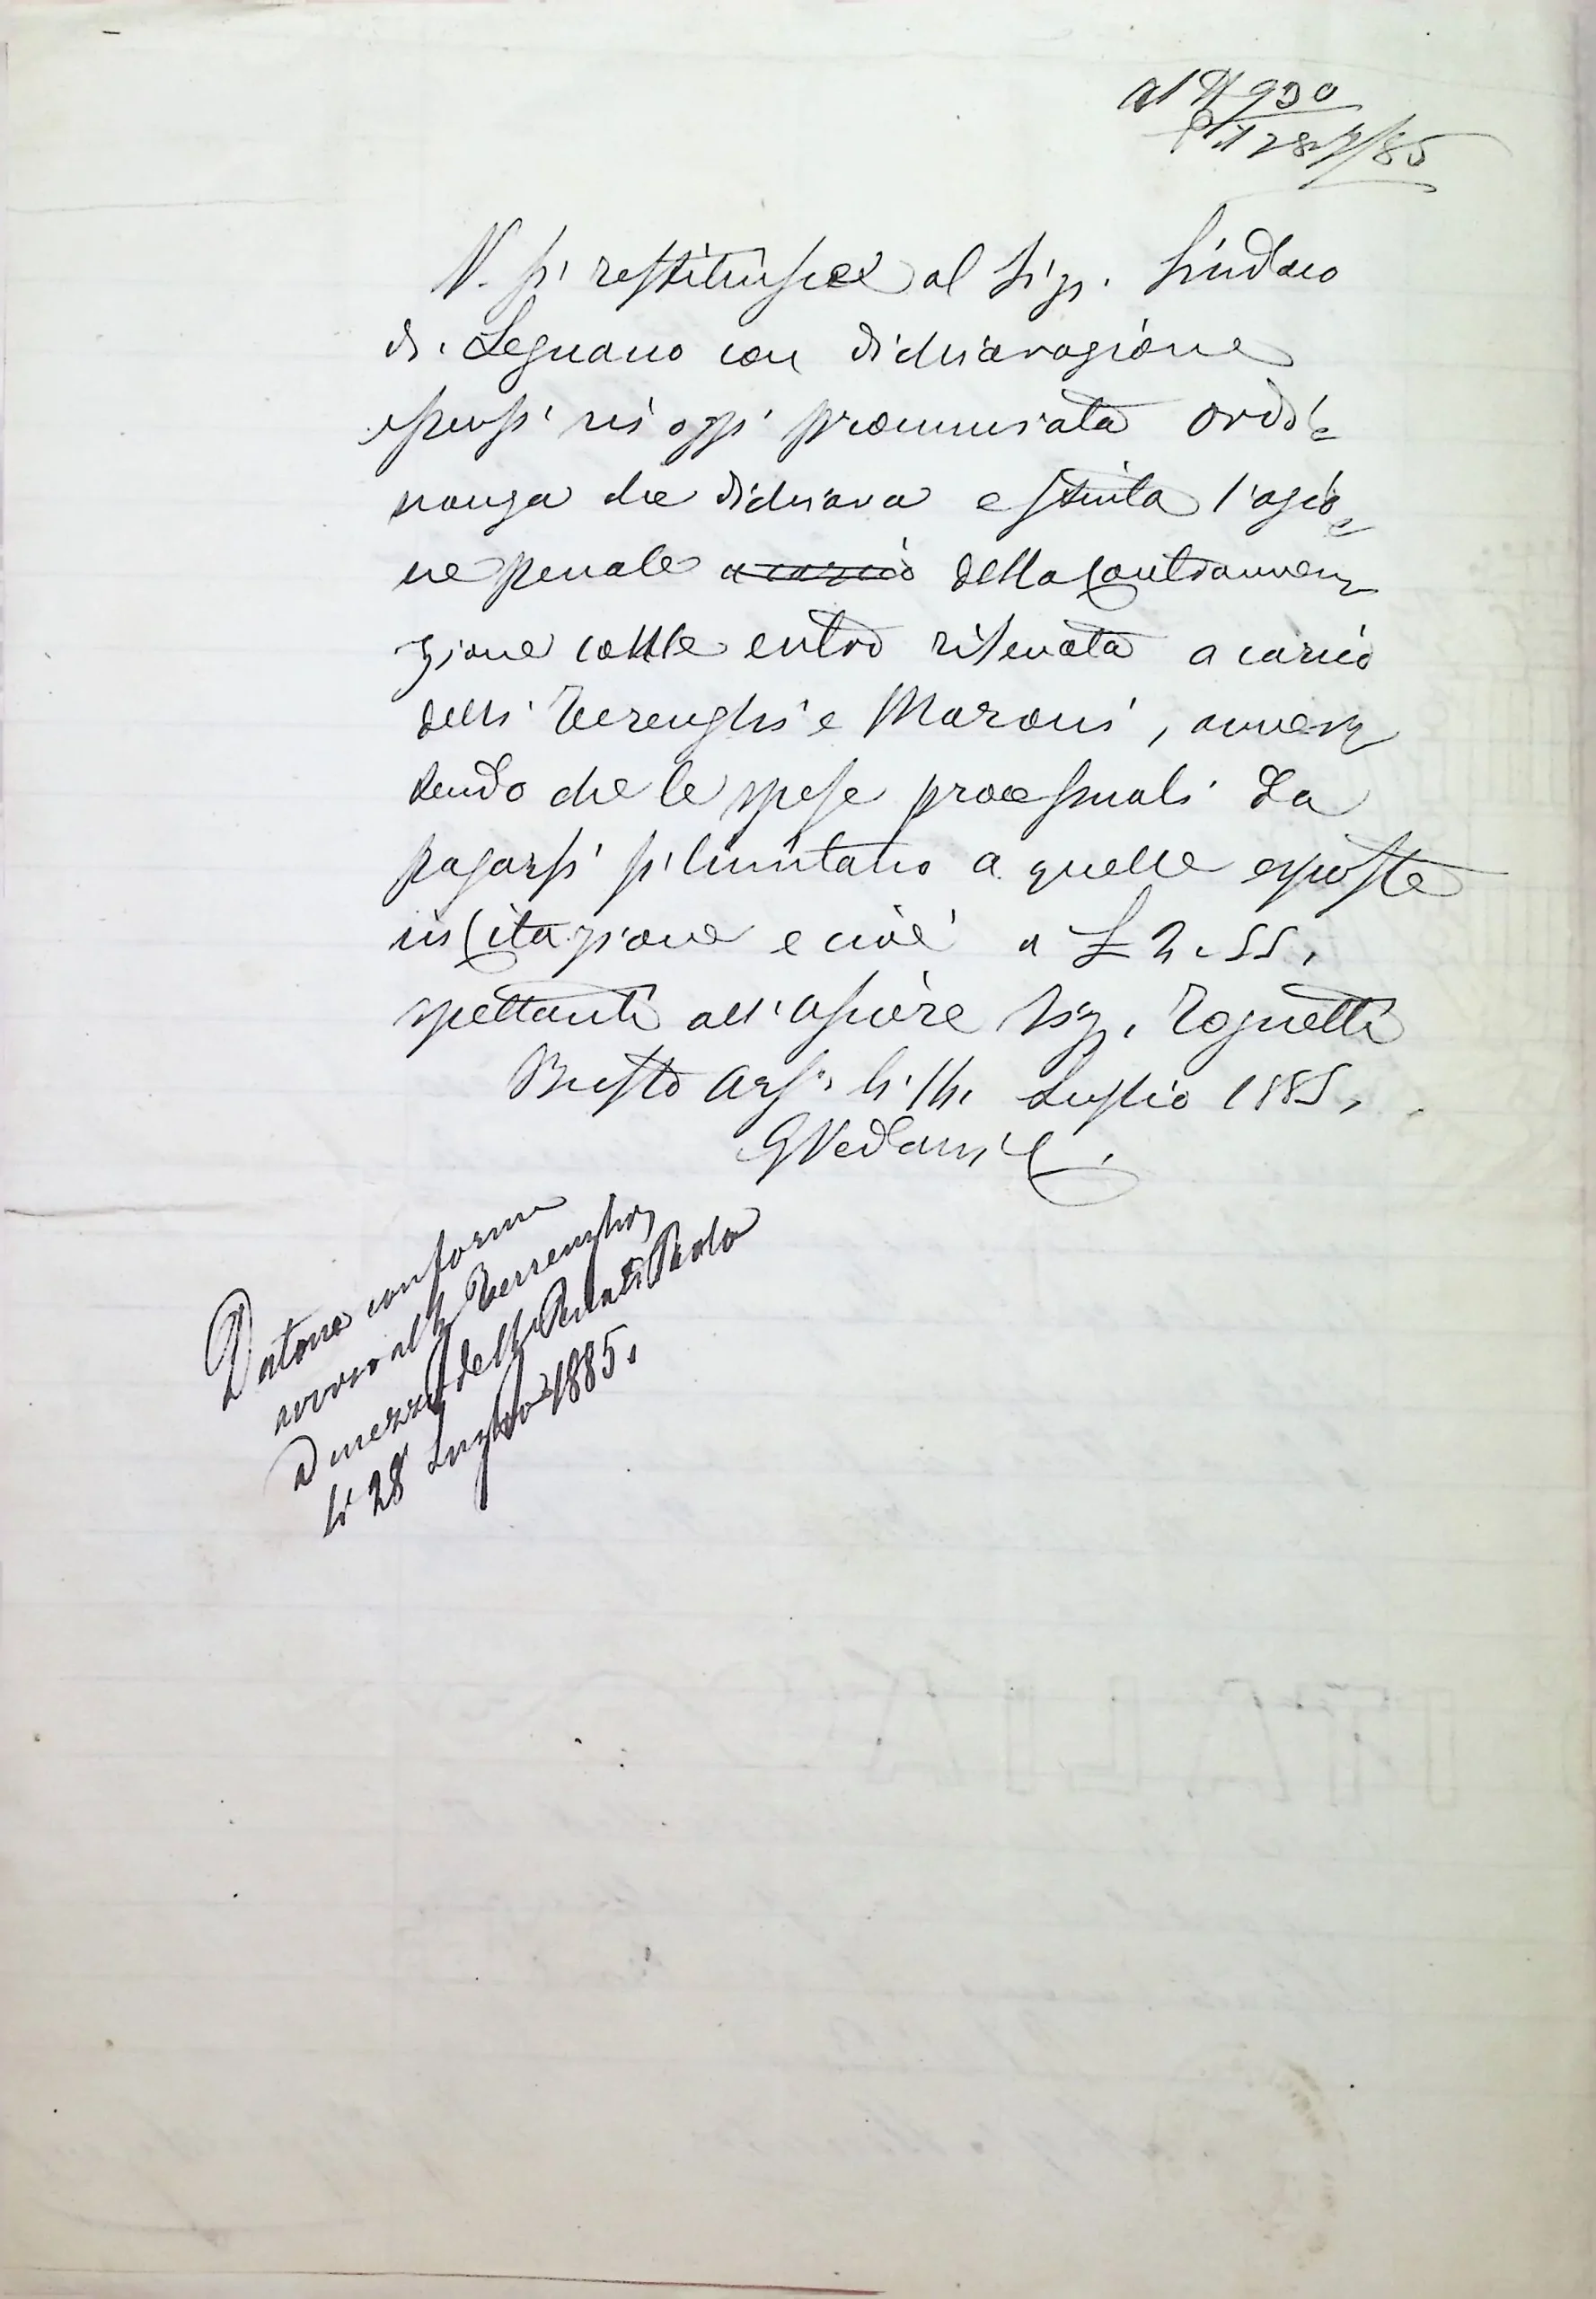 al N 930
P.t 28 7/85
N. Si restituisce al Sig. Sindaco
di Legnano con dichiarazione
essersi in oggi pronunciata ordi-
nanza che dichiara estinta l'azio-
ne penale a carico della Contravven-
zione colle entro rilevata a carico
delli Terenghi e Maroni, avver-
tendo che le spese processuali da
pagarsi si limitano a quelle esposte
in Citazione e cioè a £ 2.55.
spettanti all'usciere Sig. Tognetti
Busto Ars.o li Luglio 1885.
GVedani
Datone conforme
avviso al Terrenghi
a mezzo della Paola
li 28 Luglio 1885.